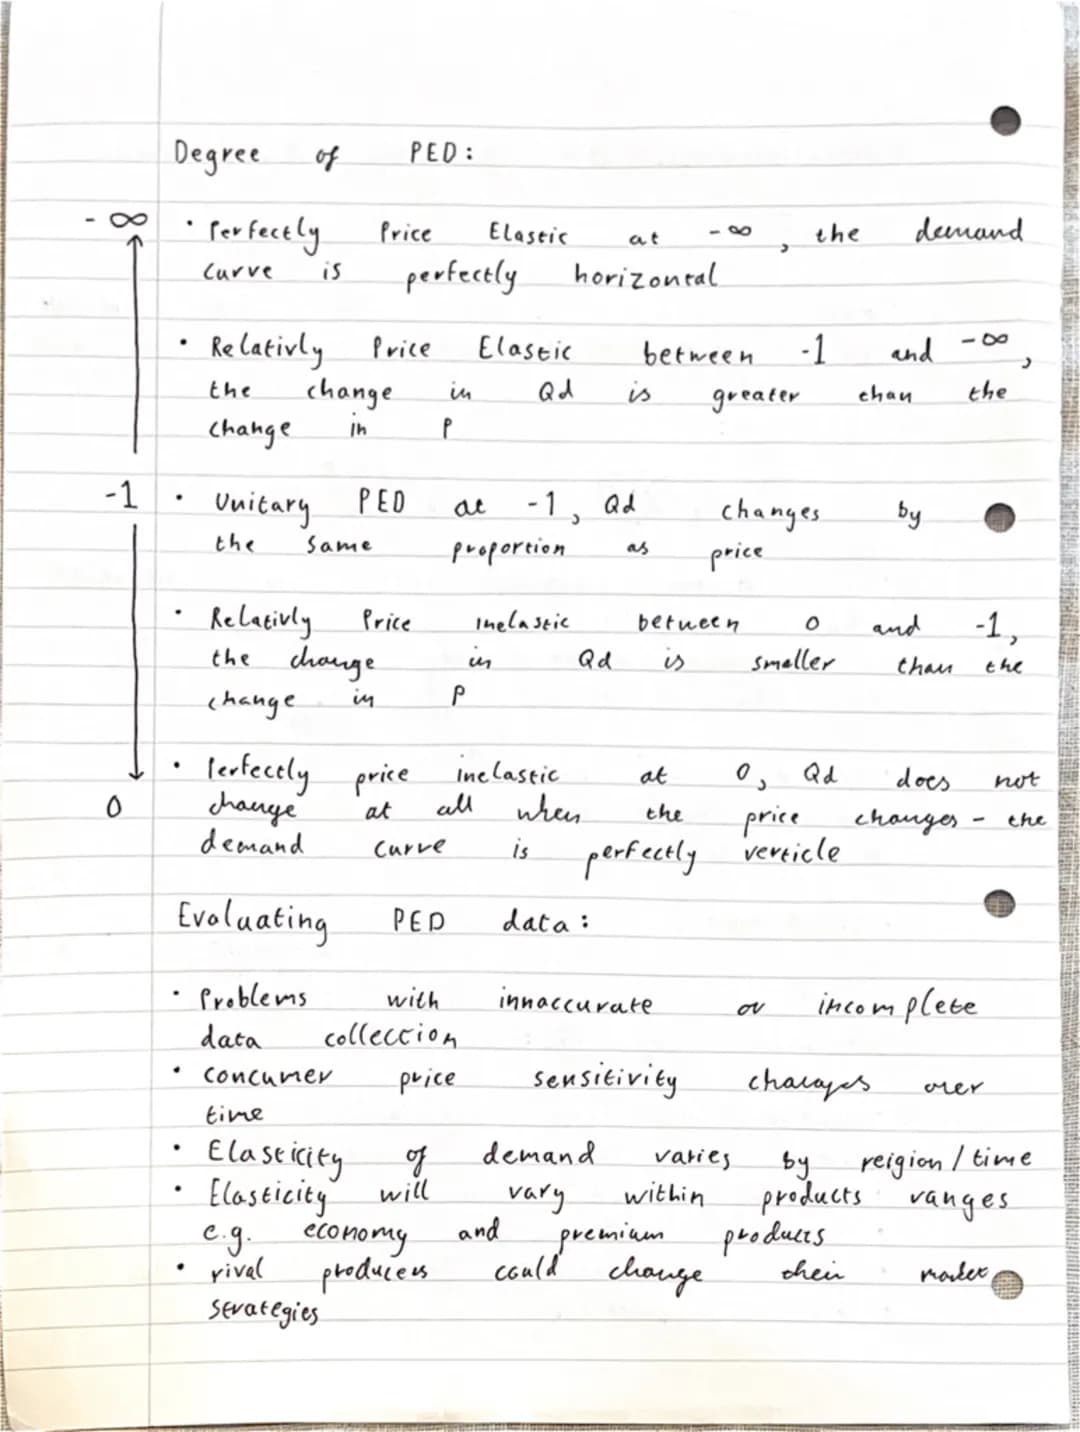 Degree of PED:
- ∞
• Perfectly Price Elastic at -∞, the demand
curve is perfectly horizontal
• Relativly Price Elastic between -1 and -∞,
the change in Qd is greater than the
change in P
-1
• Unitary PED at -1, Qd changes by
the same proportion as price
• Relativly Price inelastic between 0 and -1,
the change in Qd is smaller than the
change in P
• Perfectly price inelastic at 0, Qd does not
0
change at all when the price changes - the
demand curve is perfectly verticle
Evaluating PED data:
• Problems with innaccurate or incomplete
data collection
• concumer price sensitivity changes over
time
• Elasticity of demand varies by reigion / time
• Elasticity will vary within products ranges
e.g. economy and premium products
• rival producers could change their market
strategies